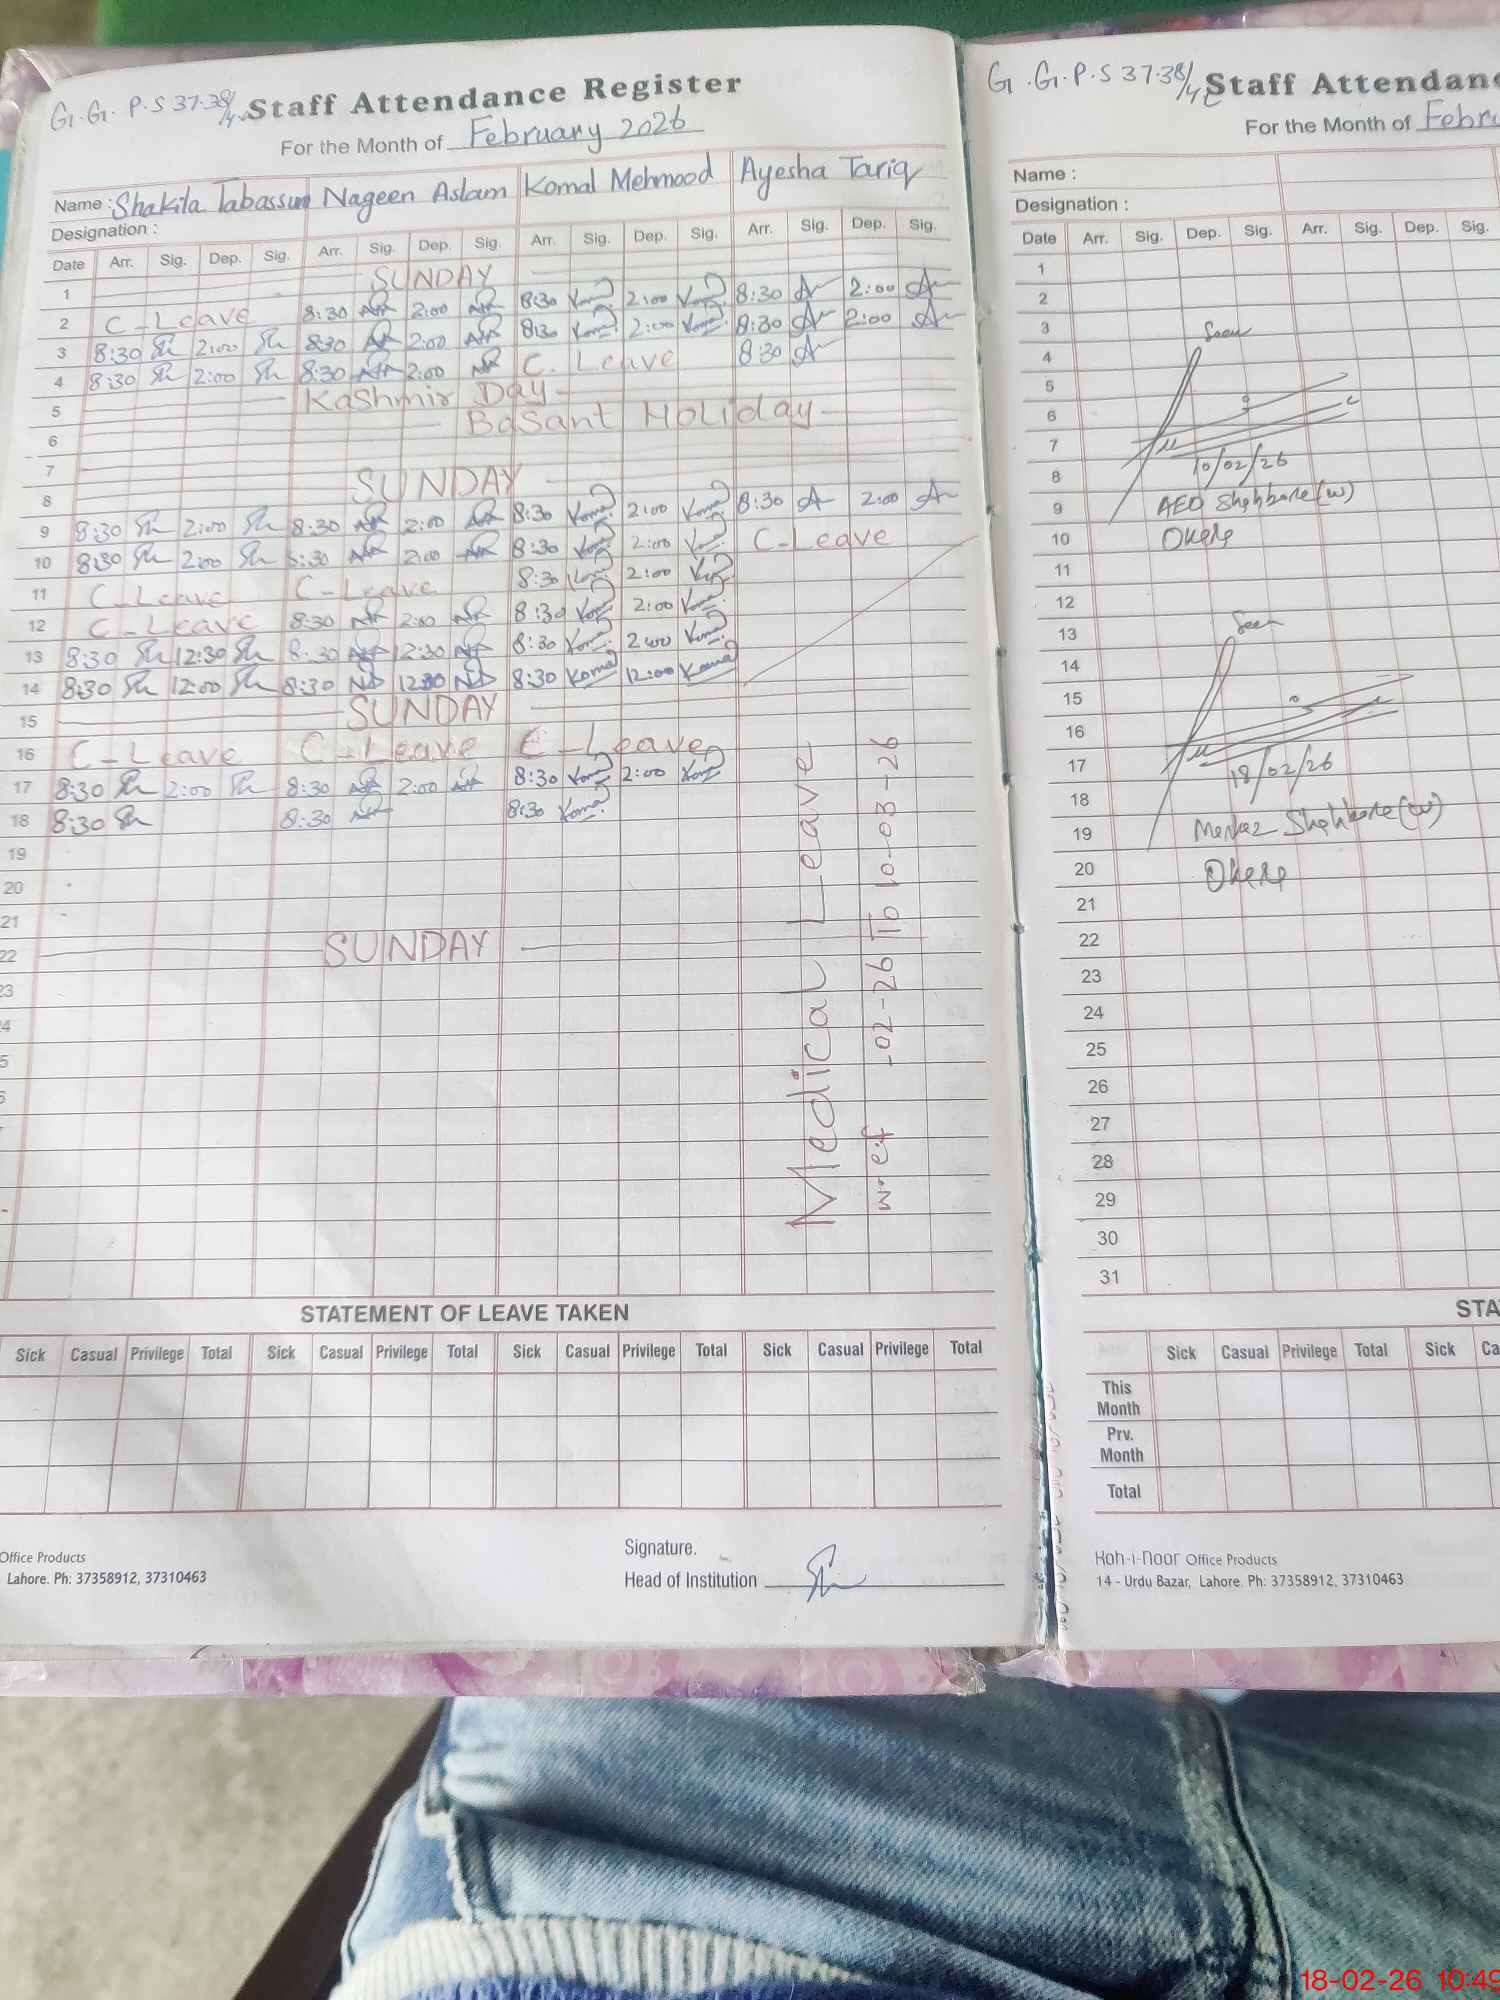 G.G.P.S 37.38/4L Staff Attendance Register
For the Month of February 2026
Name : Shakila Tabassum Nageen Aslam Komal Mehmood Ayesha Tariq
Designation :
Date Arr. Sig. Dep. Sig. Arr. Sig. Dep. Sig. Arr. Sig. Dep. Sig. Arr. Sig. Dep. Sig.
1 SUNDAY
2 C-Leave 8:30 2:00 8:30 Komal 2:00 Komal 8:30 2:00
3 8:30 2:00 8:30 2:00 8:30 Komal 2:00 Komal 8:30 2:00
4 8:30 2:00 8:30 2:00 C. Leave 8:30
5 Kashmir Day
6 Basant Holiday
7
8 SUNDAY
9 8:30 2:00 8:30 2:00 8:30 Komal 2:00 Komal 8:30 2:00
10 8:30 2:00 8:30 2:00 8:30 Komal 2:00 Komal C-Leave
11 C-Leave C-Leave 8:30 Komal 2:00 Komal
12 C-Leave 8:30 2:00 8:30 Komal 2:00 Komal
13 8:30 12:30 8:30 12:30 8:30 Komal 2:00 Komal
14 8:30 12:00 8:30 12:30 8:30 Komal 12:00 Komal
15 SUNDAY
16 C-Leave C-Leave C-Leave
17 8:30 2:00 8:30 2:00 8:30 Komal 2:00 Komal
18 8:30 8:30 8:30 Komal
19
20
21
22 SUNDAY
23
Medical Leave
w.e.f -02-26 To 10-03-26
STATEMENT OF LEAVE TAKEN
Sick Casual Privilege Total Sick Casual Privilege Total Sick Casual Privilege Total Sick Casual Privilege Total
Signature.
Head of Institution
Office Products
Lahore. Ph: 37358912, 37310463
G.G.P.S 37.38/4L Staff Attendanc
For the Month of Febru
Name :
Designation :
Date Arr. Sig. Dep. Sig. Arr. Sig. Dep. Sig.
1
2
3
Seen
4
5
6
7
10/02/26
8
9 AEO Shahbore (w)
10 Okara
11
12
13
Seen
14
15
16
17
18/02/26
18
19 Markaz Shahbore (w)
20 Okara
21
22
23
24
25
26
27
28
29
30
31
STA
Sick Casual Privilege Total Sick Ca
This Month
Prv. Month
Total
Koh-i-noor Office Products
14 - Urdu Bazar, Lahore. Ph: 37358912, 37310463
18-02-26 10:49